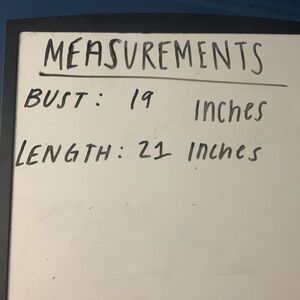 MEASUREMENTS
BUST: 19 inches
LENGTH: 21 inches